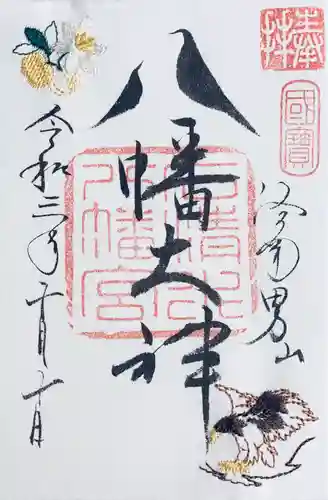 奉拝
國寶
洛南男山
八幡大神
石清水八幡宮
令和二年十月十日